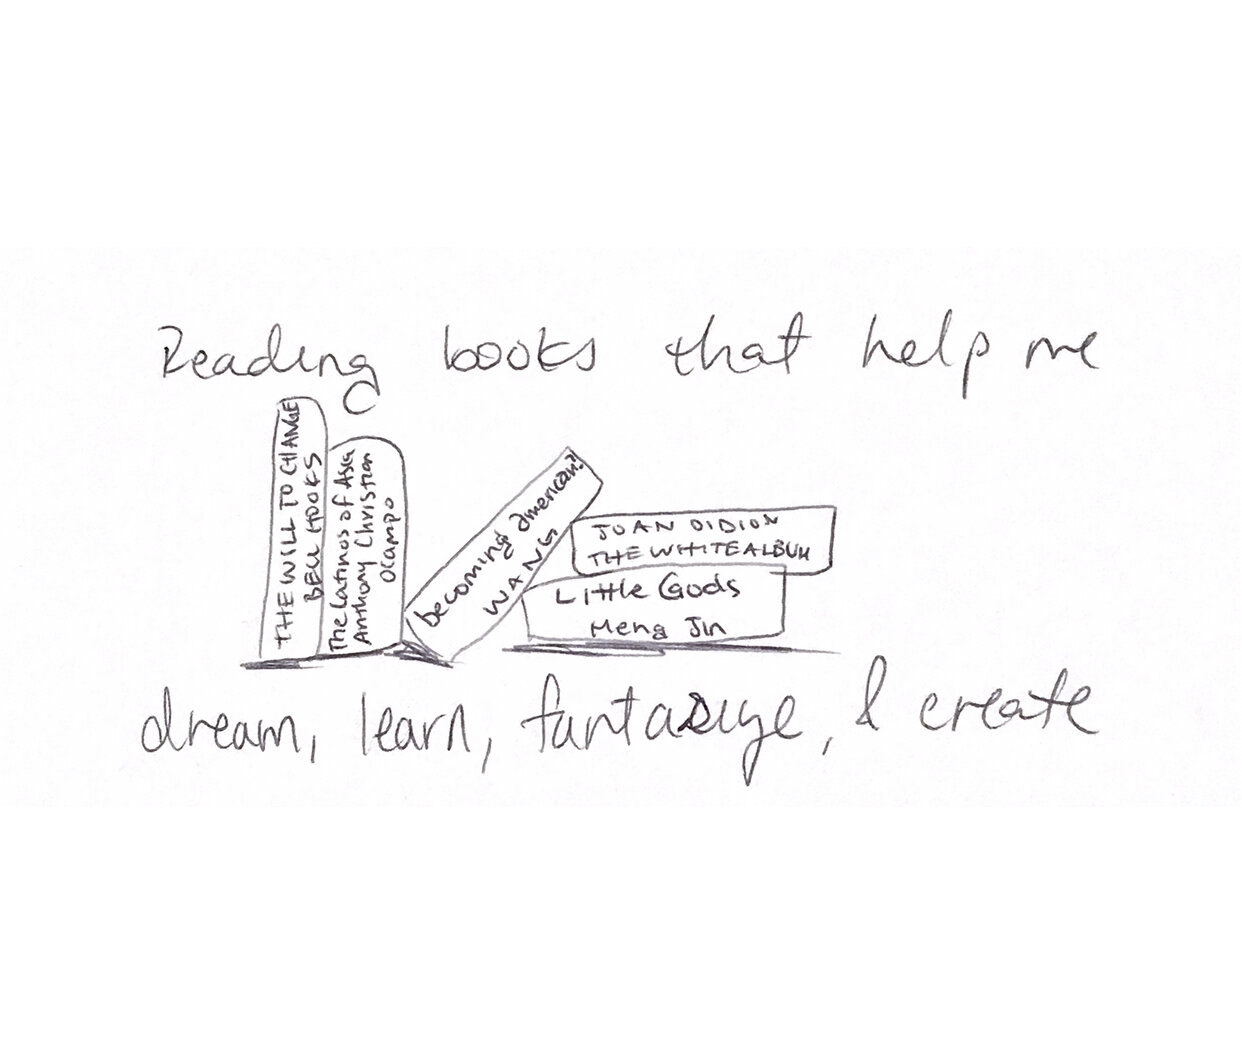 Reading books that help me
THE WILL TO CHANGE
BELL HOOKS
The Latinos of Asia
Anthony Christian
Ocampo
becoming american?!
WANG
JOAN DIDION
THE WHITE ALBUM
Little Gods
Meng Jin
dream, learn, fantasize, & create